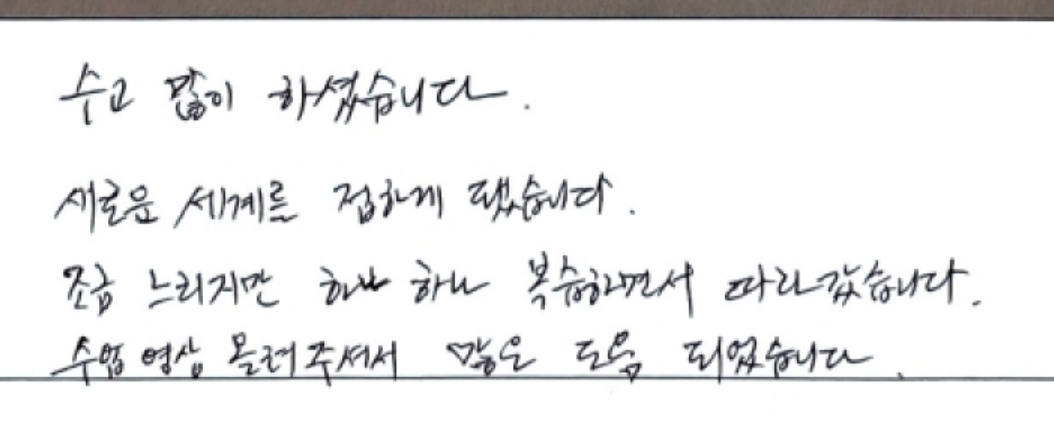 수고 많이 하셨습니다.
새로운 세계를 접하게 됐습니다.
조금 느리지만 하나 하나 복습하면서 따라갔습니다.
수업 영상 올려주셔서 많은 도움 되었습니다.